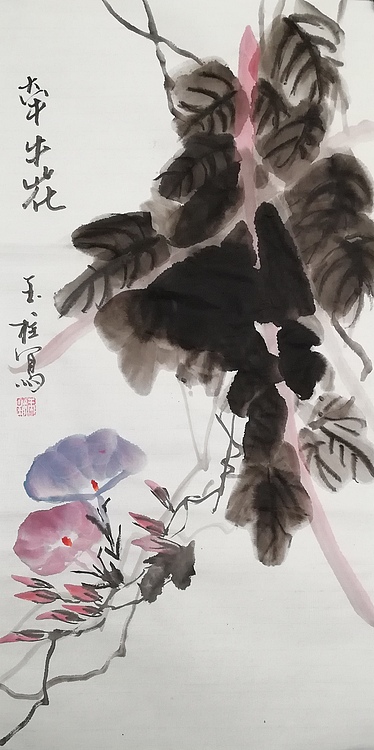 牵牛花
玉柱写